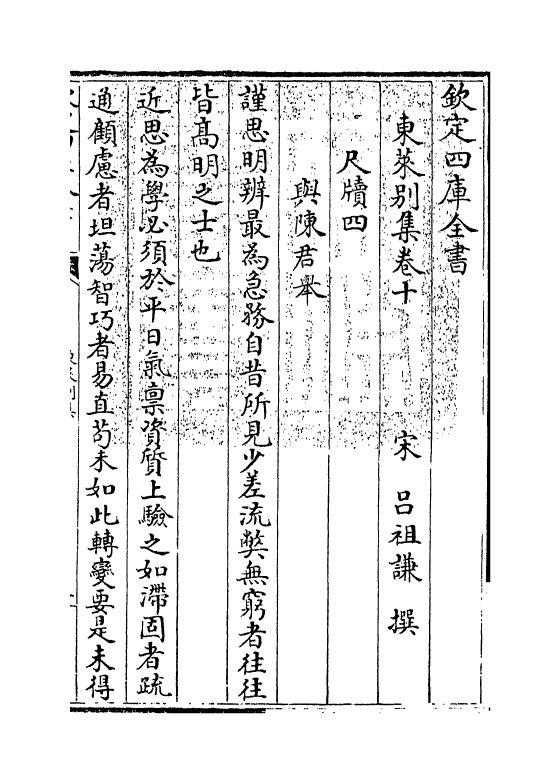 欽定四庫全書
東萊別集卷十　宋　呂祖謙　撰
尺牘四
與陳君舉
謹思明辨最為急務自昔所見少差流弊無窮者往往
皆髙明之士也
近思為學必須於平日氣稟資質上驗之如滯固者疏
通顧慮者坦蕩智巧者易直茍未如此轉變要是未得